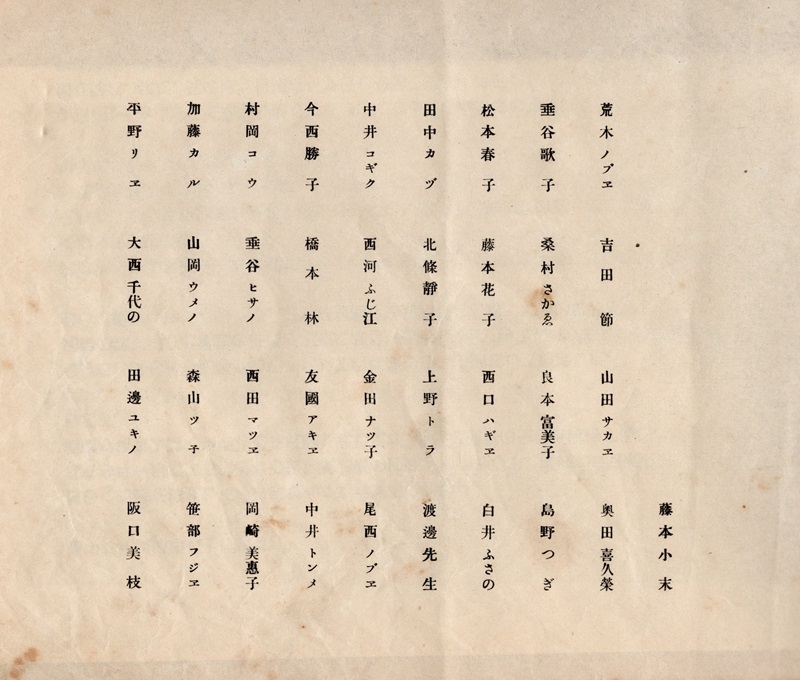 藤本小末
荒木ノブヱ 吉田節 山田サカヱ 奥田喜久榮
垂谷歌子 桑村さかゑ 良本富美子 島野つぎ
松本春子 藤本花子 西口ハギヱ 白井ふさの
田中カヅ 北條靜子 上野トラ 渡邊先生
中井コギク 西河ふじ江 金田ナツ子 尾西ノブヱ
今西勝子 橋本林 友國アキヱ 中井トンメ
村岡コウ 垂谷ヒサノ 西田マツヱ 岡崎美惠子
加藤カル 山岡ウメノ 森山ツ子 笹部フジヱ
平野リヱ 大西千代の 田邊ユキノ 阪口美枝